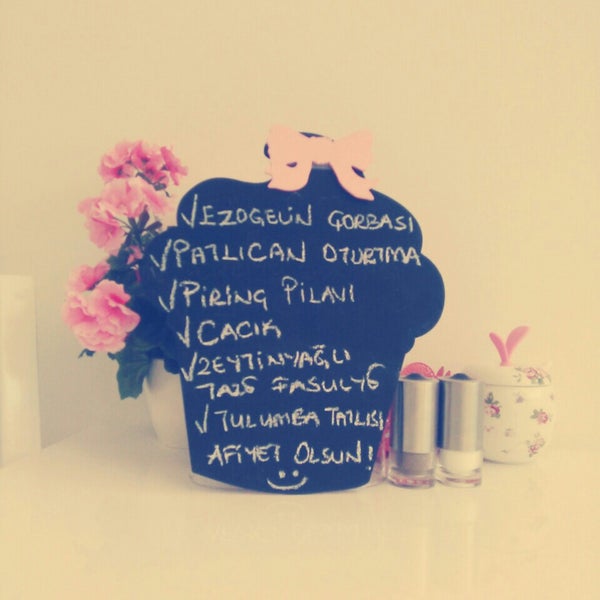 √ EZOGELİN ÇORBASI
√ PATLICAN OTURTMA
√ PİRİNÇ PİLAVI
√ CACIK
√ ZEYTİNYAĞLI
TAZE FASULYE
√ TULUMBA TATLISI
AFİYET OLSUN!